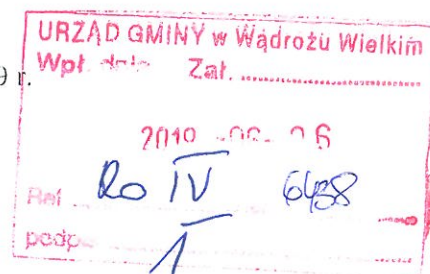 URZĄD GMINY w Wądrożu Wielkim
9 r.
Wpł. dnia Zał.
Ref. Ro IV 6458
podp.